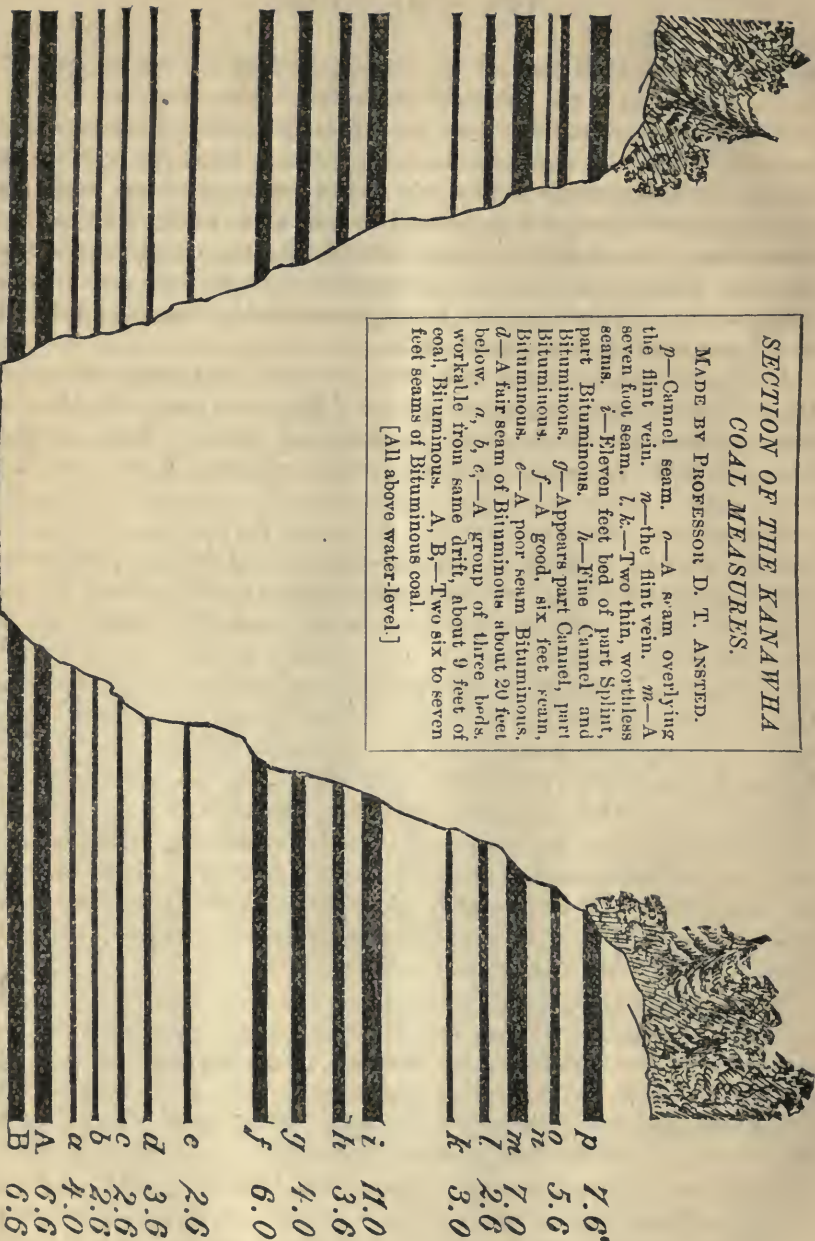 SECTION OF THE KANAWHA
COAL MEASURES.
MADE BY PROFESSOR D. T. ANSTED.
p—Cannel seam. o—A seam overlying
the flint vein. n—the flint vein. m—A
seven foot seam. l. k.—Two thin, worthless
seams. i—Eleven feet bed of part Splint,
part Bituminous. h—Fine Cannel and
Bituminous. g—Appears part Cannel, part
Bituminous. f—A good, six feet seam,
Bituminous. e—A poor seam Bituminous.
d—A fair seam of Bituminous about 20 feet
below. a, b, c,—A group of three beds.
workable from same drift, about 9 feet of
coal, Bituminous. A, B,—Two six to seven
feet seams of Bituminous coal.
[All above water-level.]
p 7.6
o 5.6
n
m 7.0
l 2.6
k 3.0
i 11.0
h 3.6
g 4.0
f 6.0
e 2.6
d 3.6
c 2.6
b 2.6
a 4.0
A 6.6
B 6.6